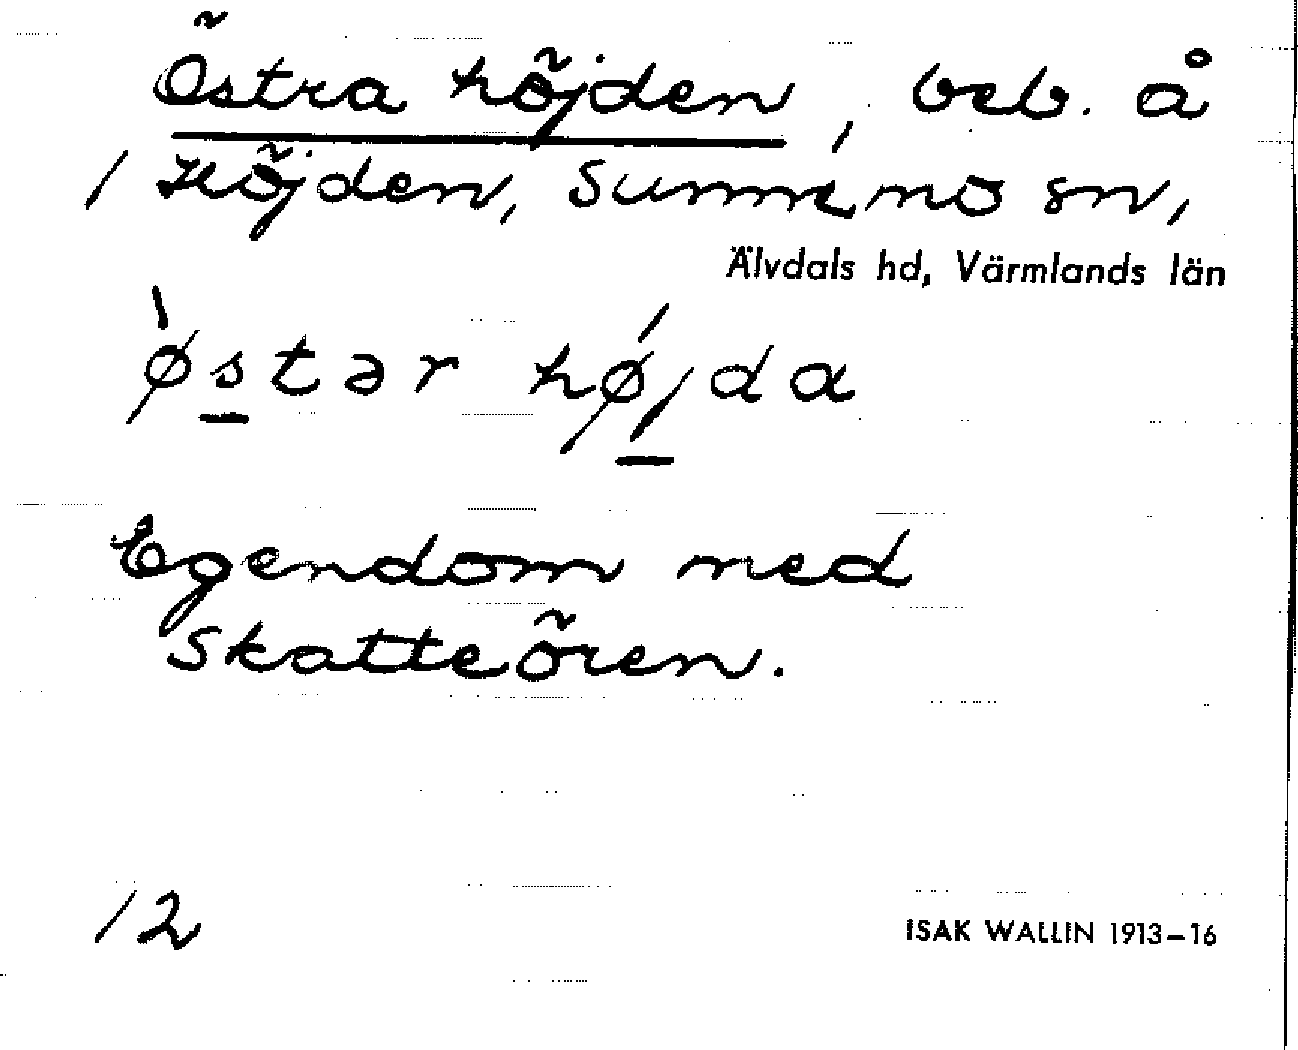 Östra höjden, beb. å
1 Höjden, Sunnemo sn,
Älvdals hd, Värmlands län
`østər hø´jda
Egendom med
Skatteören.
12
ISAK WALLIN 1913–16